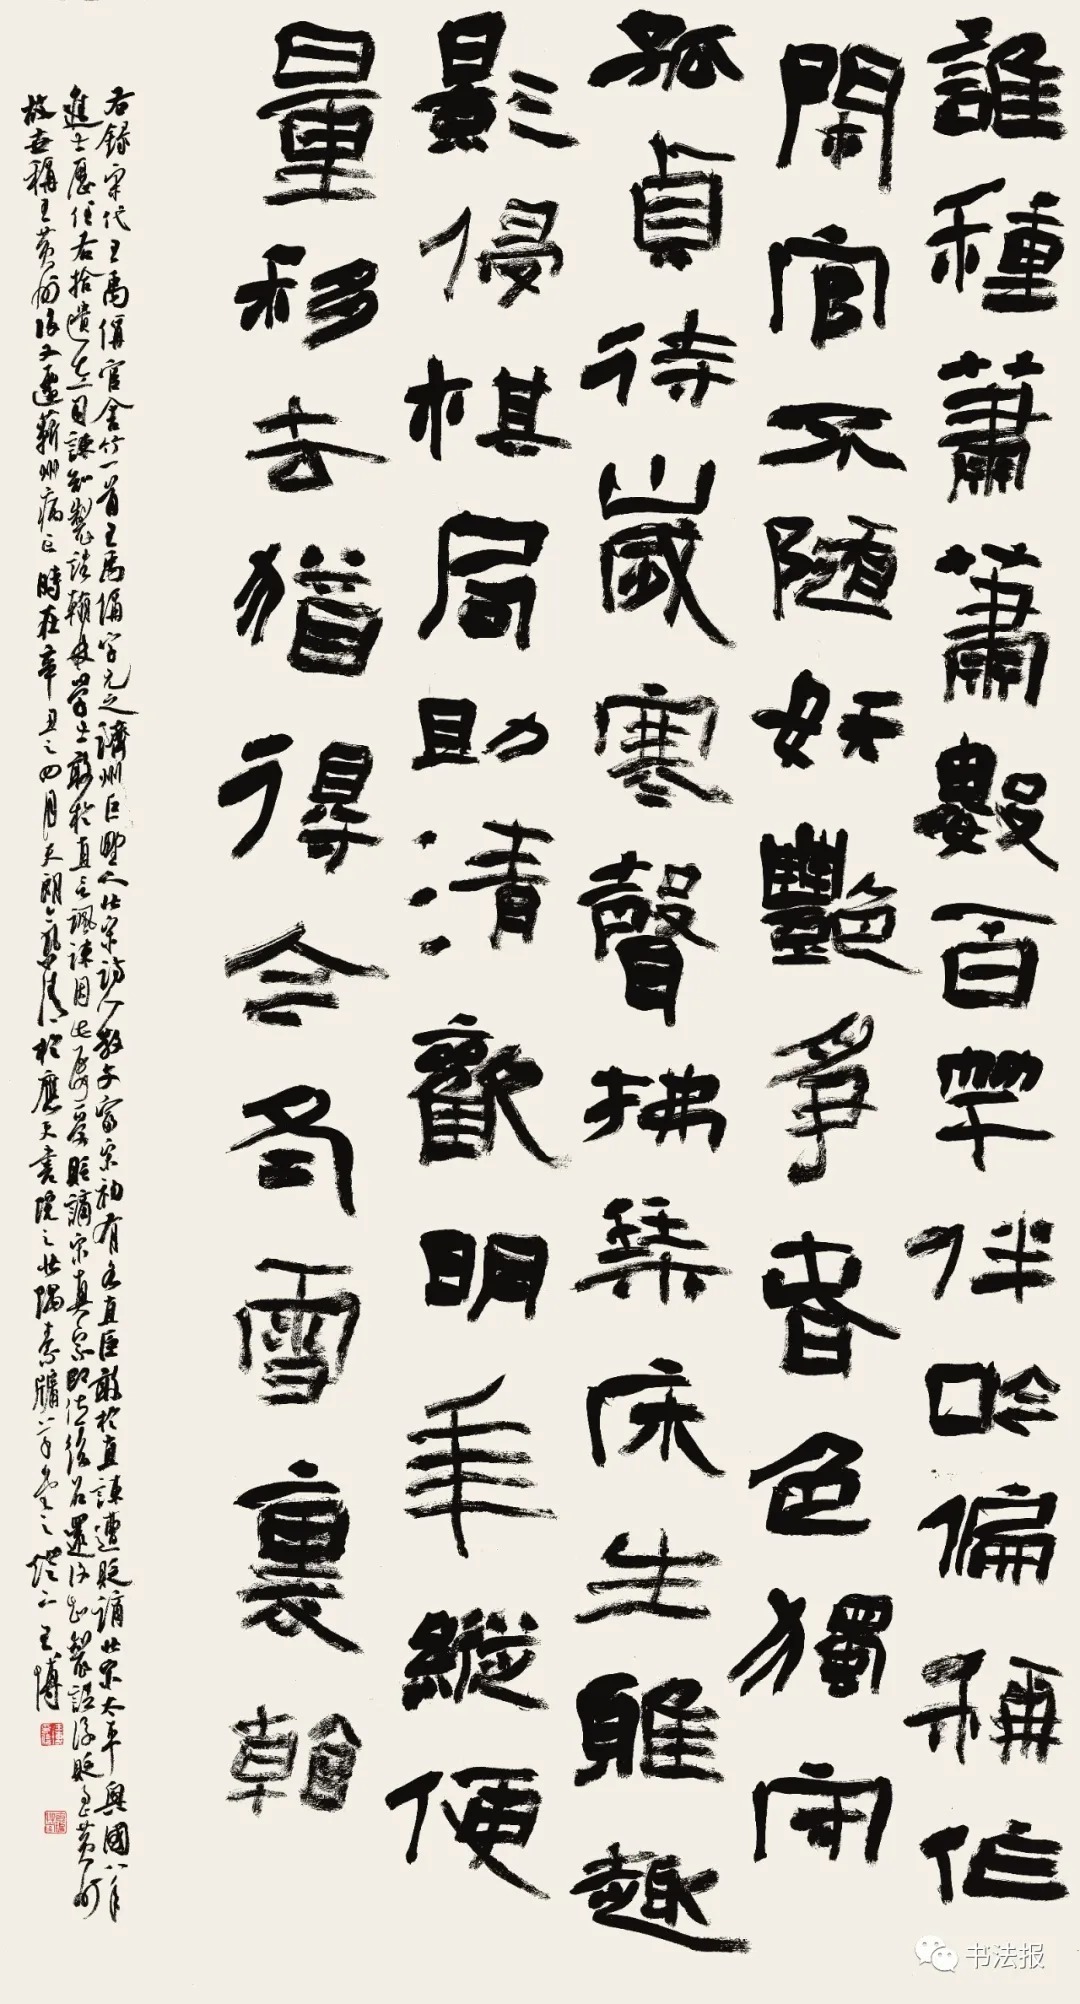 誰種蕭蕭數百竿伴吟偏稱作
閑官不隨妖艷爭春色獨守
孤貞待歲寒聲拂琴床生雅趣
影侵棋局助清歡明年縱便
量移去猶得今冬雪裏看
右錄宋代王禹偁官舍竹一首王禹偁字元之濟州巨野人北宋詩人散文家宋初有名直臣敢於直諫遭貶謫北宋太平興國八年
進士歷任右拾遺左司諫知製誥翰林學士敢於直言諷諫因此屢受貶謫宋真宗即位後召還復知製誥後貶至黃州
故世稱王黃州後又遷蘄州病亡時在辛丑之四月天朗氣清於應天書院之北隅王博
书法报